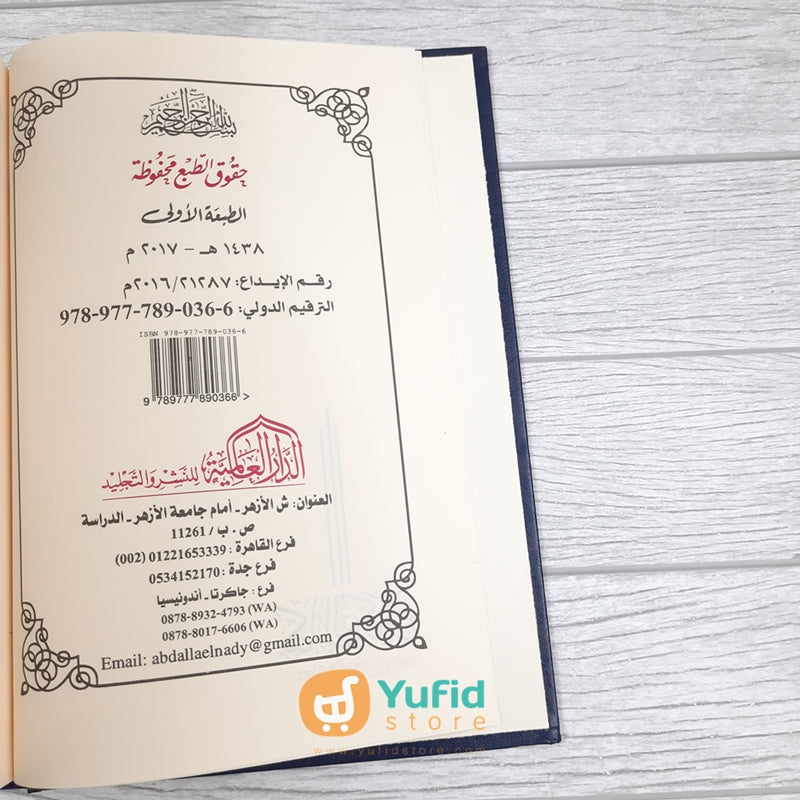 بسم الله الرحمن الرحيم
حقوق الطبع محفوظة
الطبعة الأولى
١٤٣٨ هـ - ٢٠١٧ م
رقم الإيداع: ٢٠١٦/٢١٢٨٧م
الترقيم الدولي: 978-977-789-036-6
ISBN 978-977-789-036-6
9 789777 890366 >
الدار العالمية للنشر والتجليد
العنوان: ش الأزهر - أمام جامعة الأزهر - الدراسة
ص . ب / 11261
فرع القاهرة : 01221653339 (002)
فرع جدة : 0534152170
فرع : جاكرتا - أندونيسيا
0878-8932-4793 (WA)
0878-8017-6606 (WA)
Email: abdallaelnady@gmail.com
Yufid
store
www.yufidstore.com